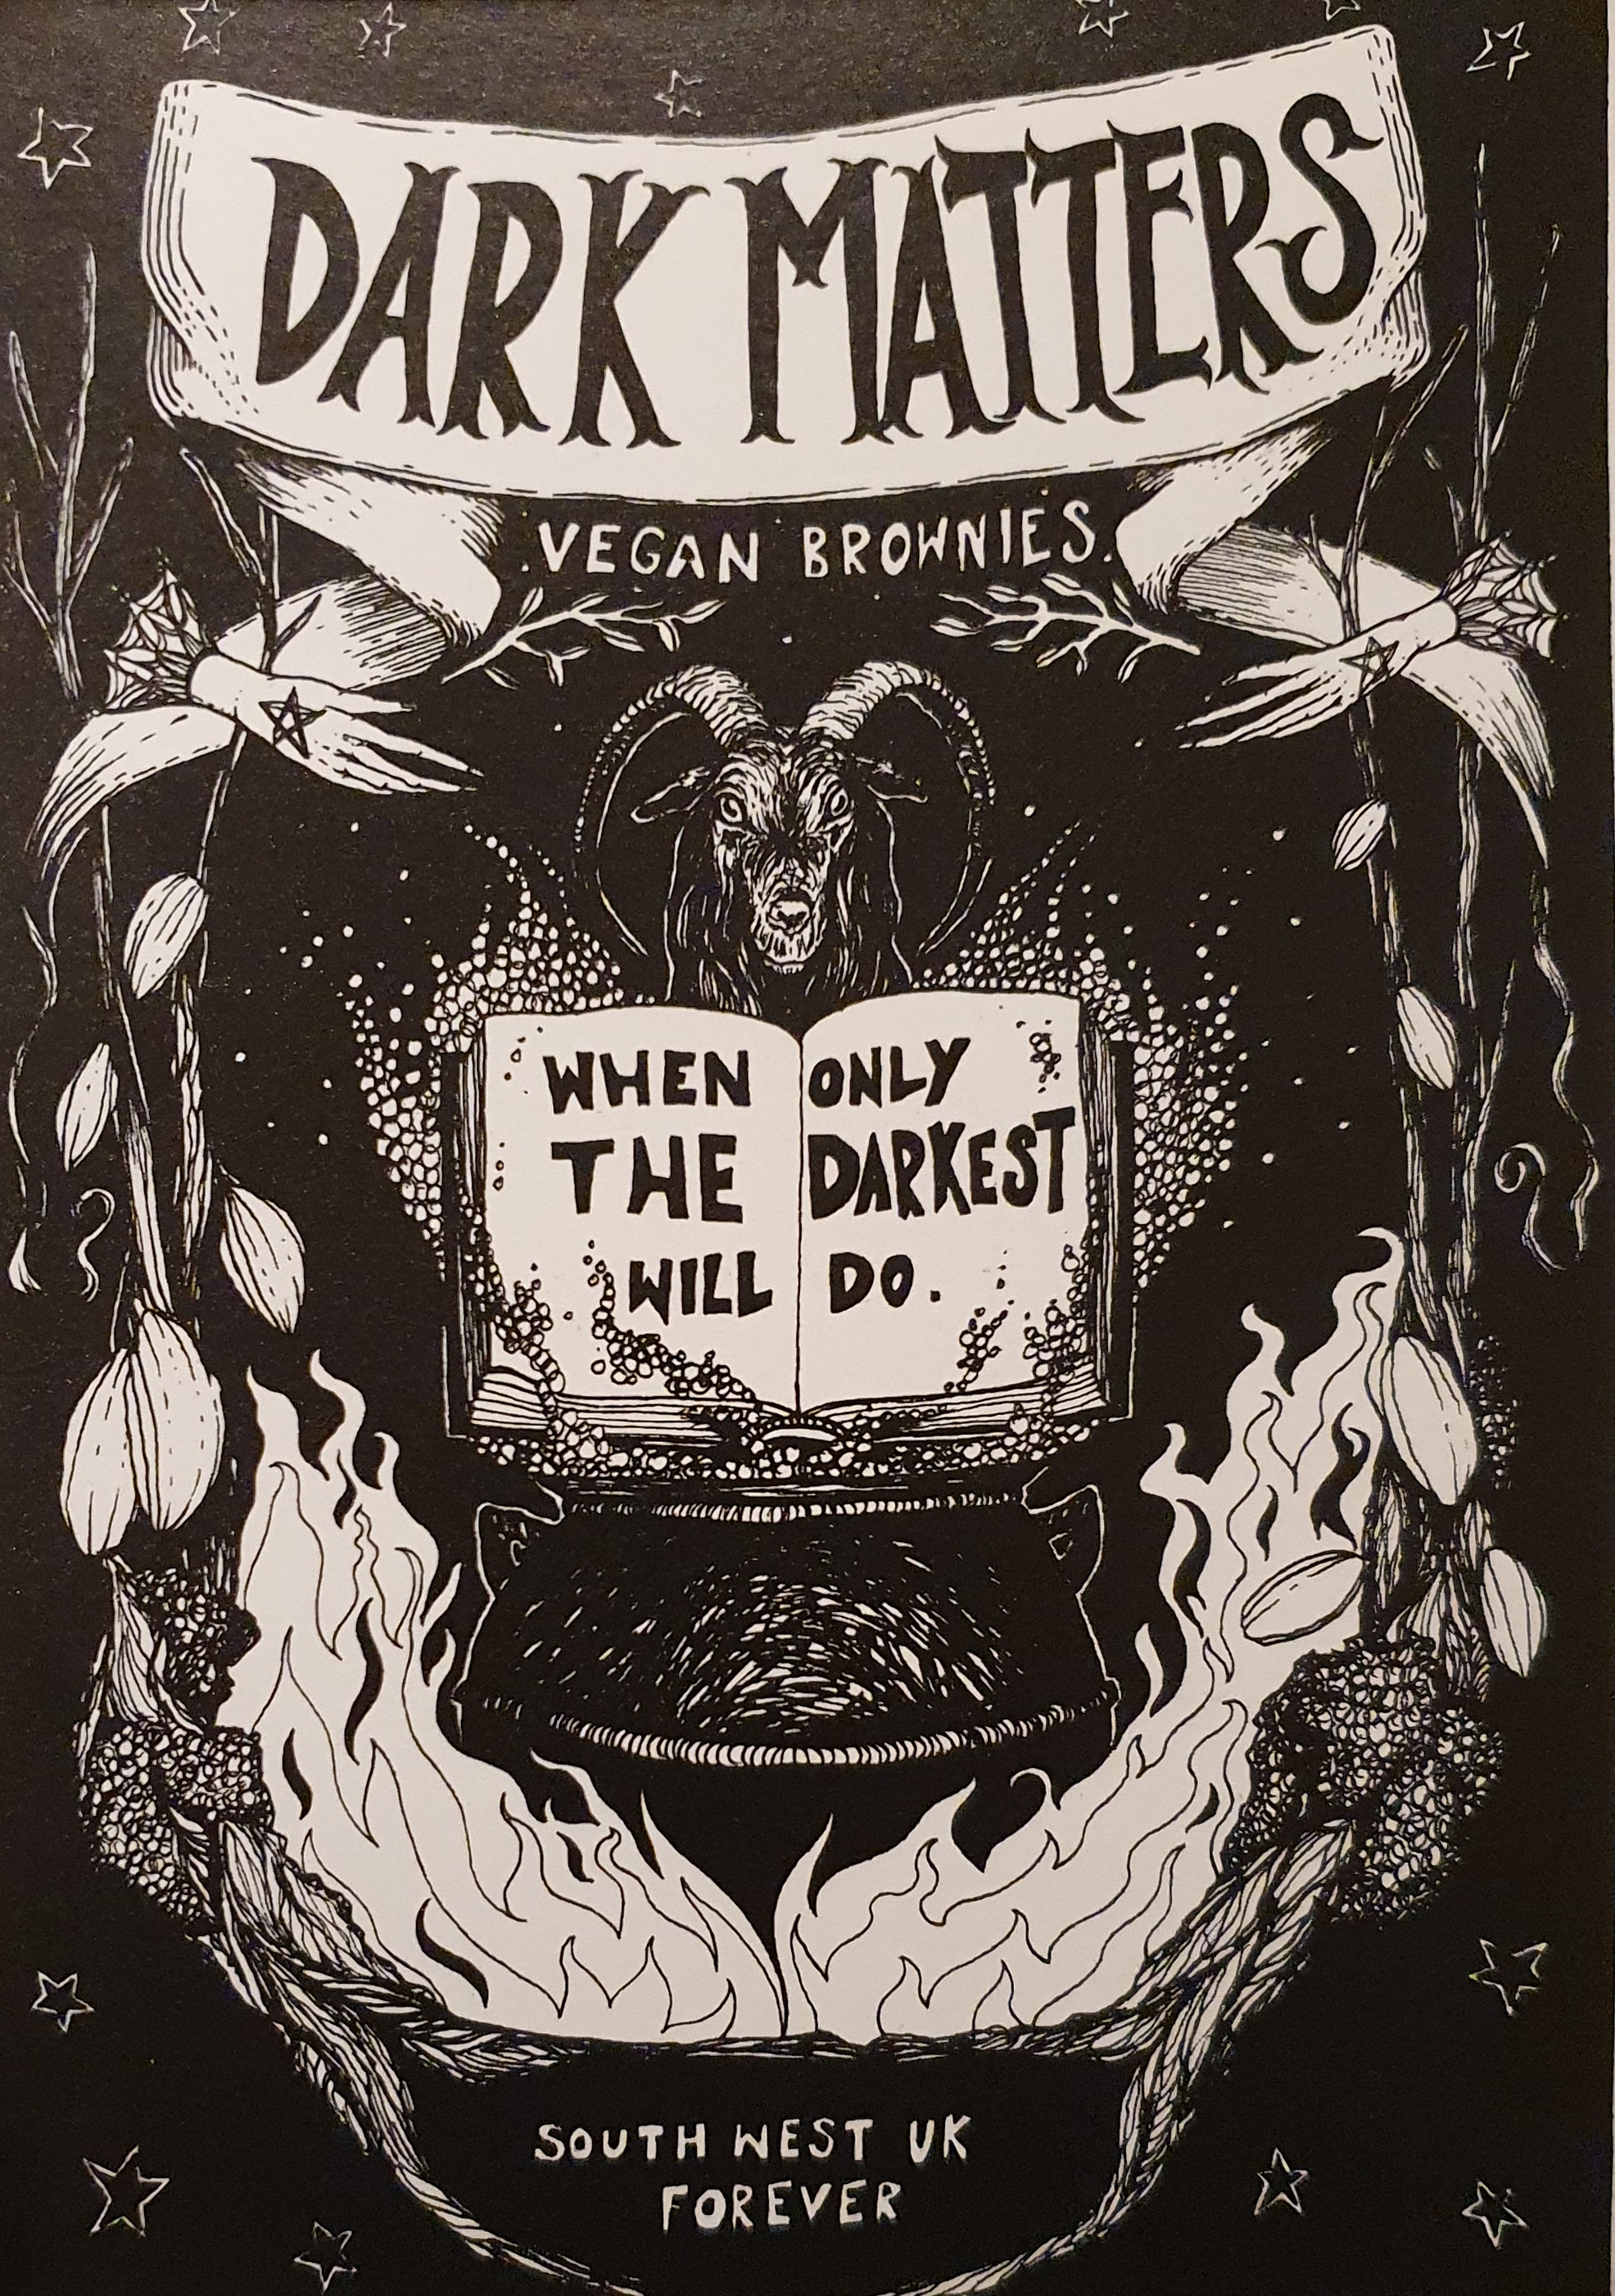 DARK MATTERS
.VEGAN BROWNIES.
WHEN ONLY
THE DARKEST
WILL DO.
SOUTH WEST UK
FOREVER